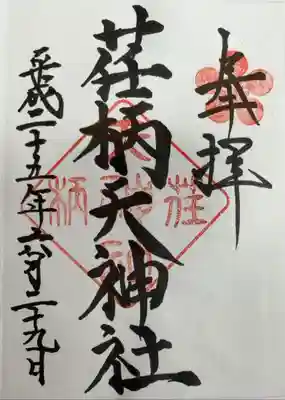 奉拝
荏柄天神社
平成二十五年六月二十九日
荏
柄